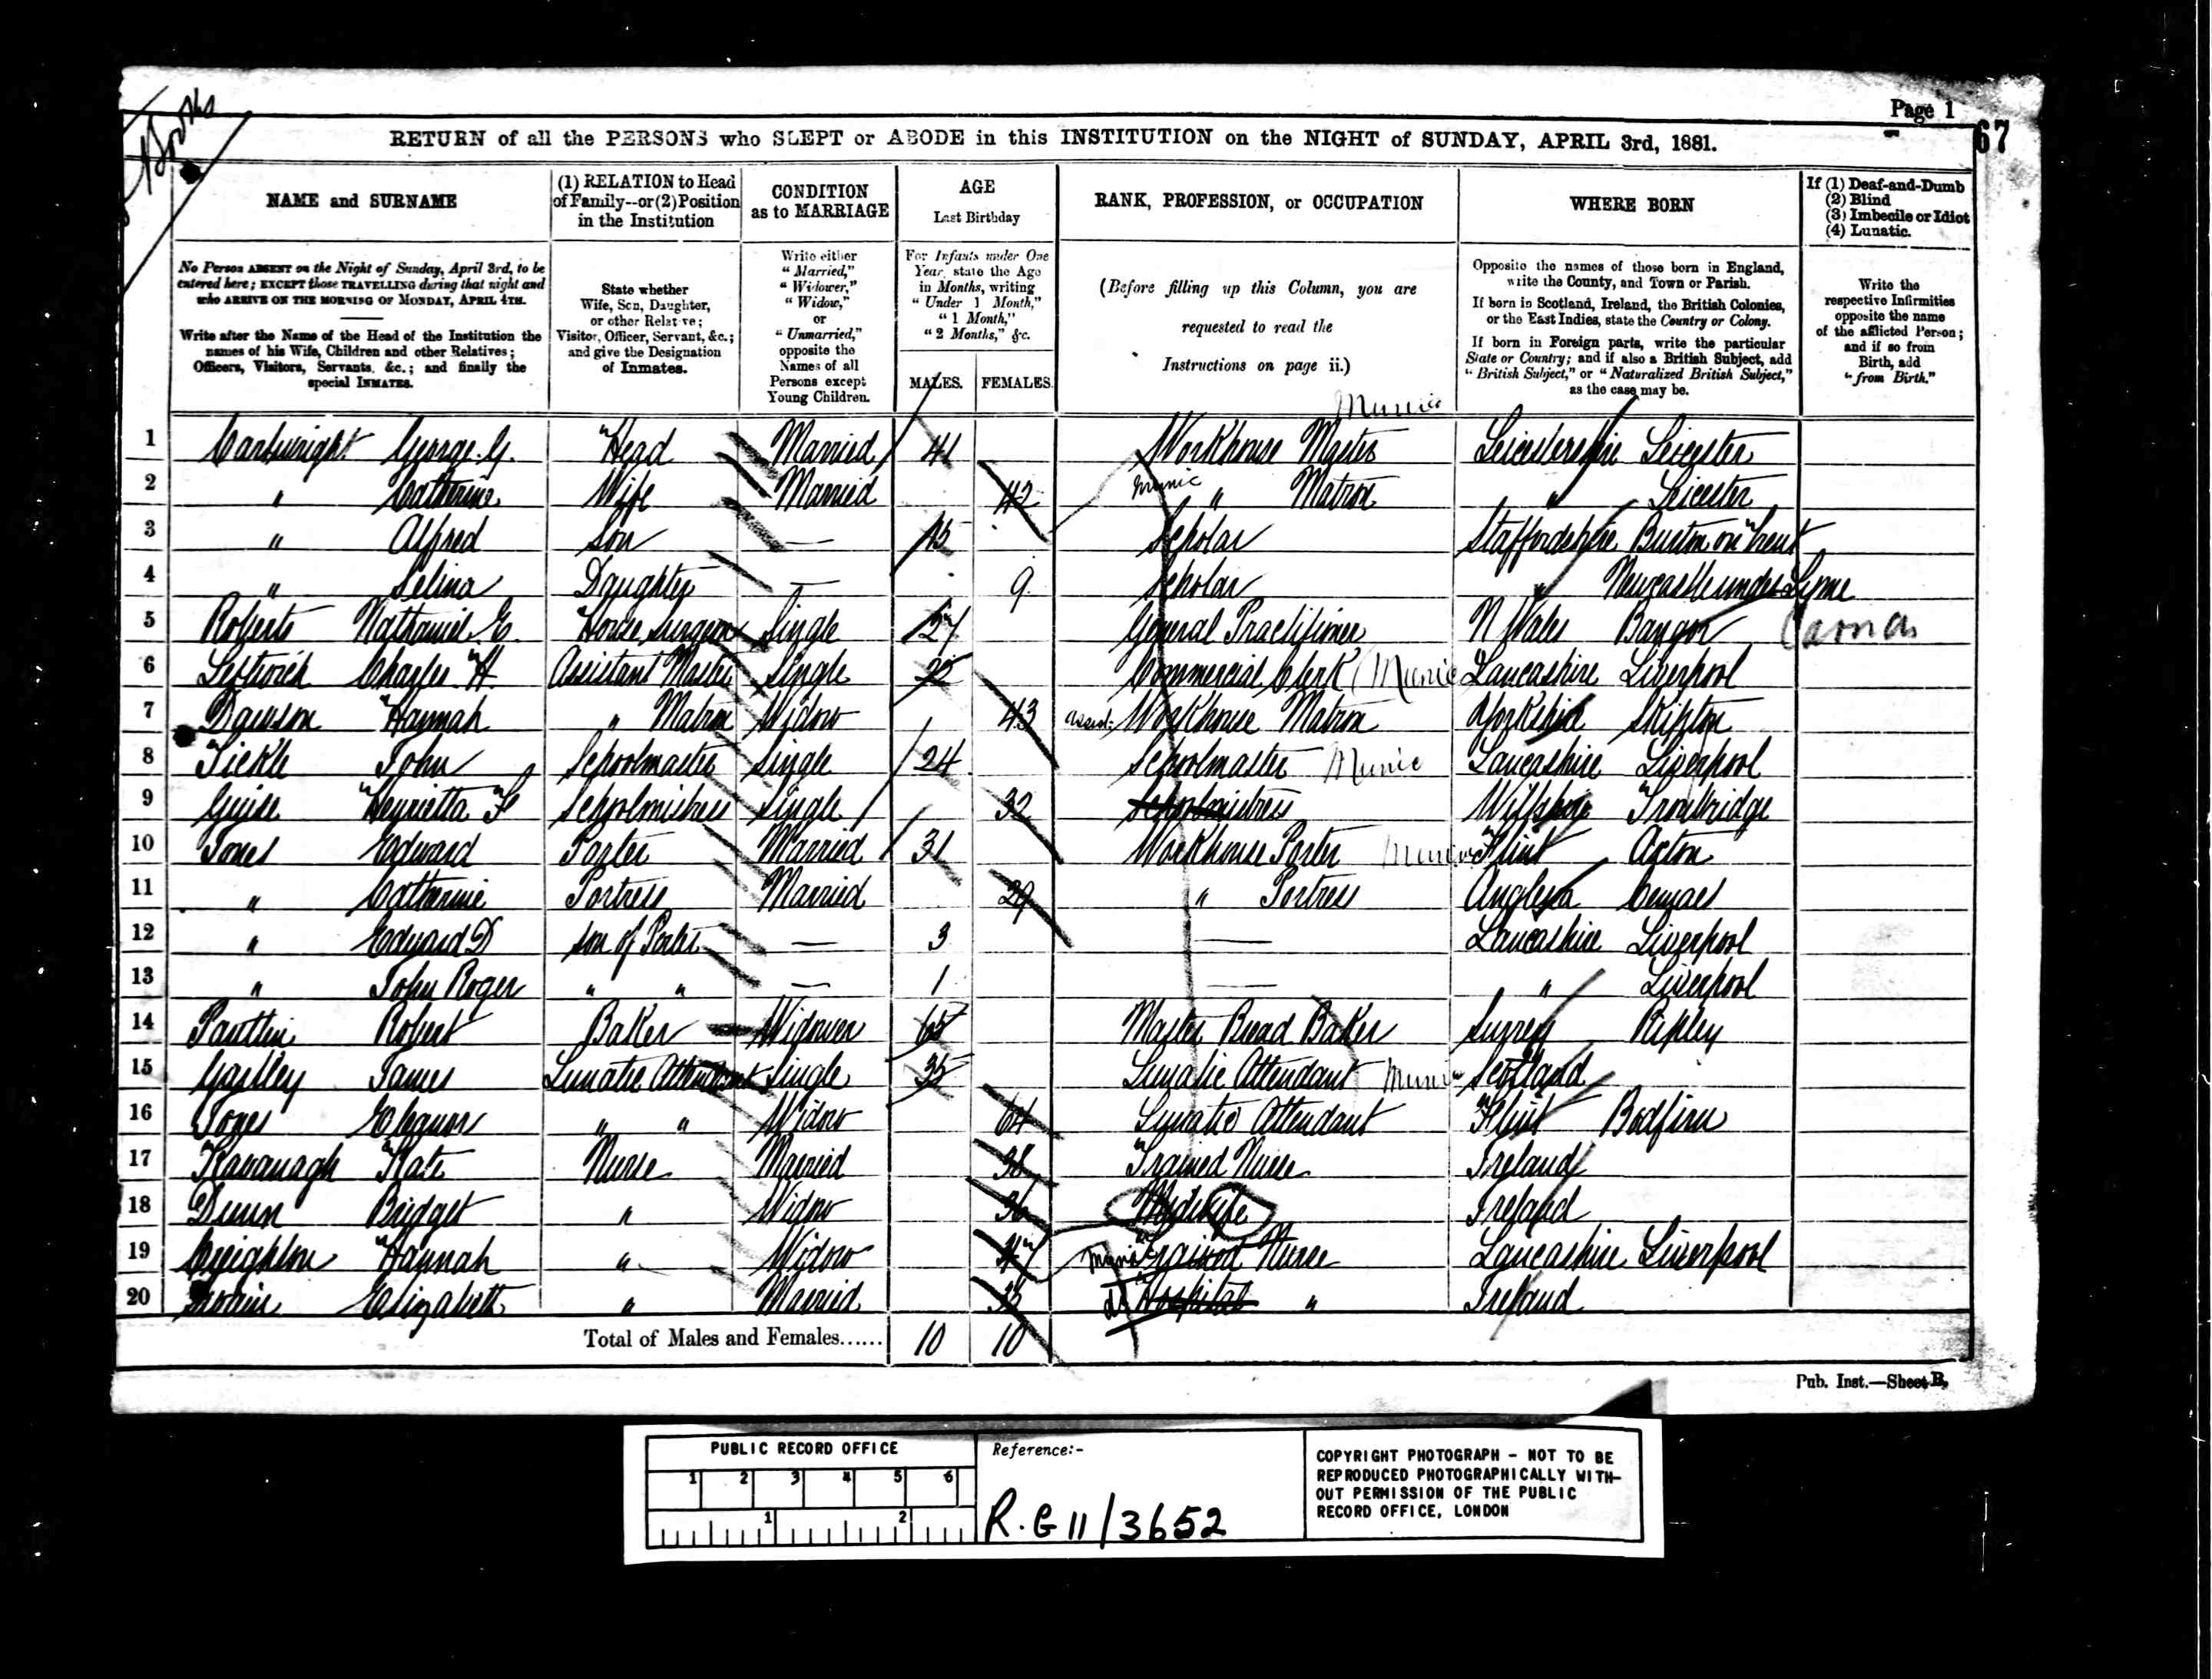 Page 1
67
RETURN of all the PERSONS who SLEPT or ABODE in this INSTITUTION on the NIGHT of SUNDAY, APRIL 3rd, 1881.
NAME and SURNAME
No Person ABSENT on the Night of Sunday, April 3rd, to be
entered here; EXCEPT those TRAVELLING during that night and
who ARRIVE ON THE MORNING OF MONDAY, APRIL 4TH.
Write after the Name of the Head of the Institution the
names of his Wife, Children and other Relatives;
Officers, Visitors, Servants, &c.; and finally the
special INMATES.
(1) RELATION to Head
of Family--or (2) Position
in the Institution
State whether
Wife, Son, Daughter,
or other Relative;
Visitor, Officer, Servant, &c.;
and give the Designation
of Inmates.
CONDITION
as to MARRIAGE
Write either
"Married,"
"Widower,"
"Widow,"
or
"Unmarried,"
opposite the
Names of all
Persons except
Young Children.
AGE
Last Birthday
For Infants under One
Year, state the Age
in Months, writing
"Under 1 Month,"
"1 Month,"
"2 Months," &c.
MALES. FEMALES.
RANK, PROFESSION, or OCCUPATION
(Before filling up this Column, you are
requested to read the
Instructions on page ii.)
WHERE BORN
Opposite the names of those born in England,
write the County, and Town or Parish.
If born in Scotland, Ireland, the British Colonies,
or the East Indies, state the Country or Colony.
If born in Foreign parts, write the particular
State or Country; and if also a British Subject, add
"British Subject," or "Naturalized British Subject,"
as the case may be.
If (1) Deaf-and-Dumb
(2) Blind
(3) Imbecile or Idiot
(4) Lunatic.
Write the
respective Infirmities
opposite the name
of the afflicted Person;
and if so from
Birth, add
"from Birth."
Munic
1 Cartwright George. G. Head Married 41 Workhouse Master Leicestershire Leicester
2 " Catherine Wife Married 42 Munic " Matron " Leicester
3 " Alfred Son — 15 Scholar Staffordshire Burton on Trent
4 " Selina Daughter — 9 Scholar " Newcastle under Lyme
5 Roberts Nathaniel E. House Surgeon Single 27 General Practitioner N Wales Bangor
6 Leftwich Charles H. Assistant Master Single 22 Commercial Clerk Munic Lancashire Liverpool
7 Dawson Hannah " Matron Widow 43 Assist: Workhouse Matron Yorkshire Skipton
8 Tickle John Schoolmaster Single 24 Schoolmaster Munic Lancashire Liverpool
9 Guise Henrietta F Schoolmistress Single 32 Schoolmistress Wiltshire Trowbridge
10 Jones Edward Porter Married 31 Workhouse Porter Munic Flint Acton
11 " Catherine Portress Married 29 " Portress Anglesea Cemaes
12 " Edward D son of Porter — 3 — Lancashire Liverpool
13 " John Roger " " — 1 — " Liverpool
14 Robert Baker Widower 65 Master Bread Baker Surrey Ripley
15 James Lunatic Attendant Single 35 Lunatic Attendant Munic Scotland
16 Jones Eleanor " " Widow 64 Lunatic Attendant Flint
17 Kavanagh Kate Nurse Married 38 Trained Nurse Ireland
18 Dunn Bridget " Widow 36 Midwife Ireland
19 Creighton Hannah " Widow 47 Munic Trained Nurse Lancashire Liverpool
20 Elizabeth " Married 35 Hospital " Ireland
Total of Males and Females...... 10 10
Pub. Inst.—Sheet B.
PUBLIC RECORD OFFICE
1 2 3 4 5 6
1 2
Reference:-
R.G 11/3652
COPYRIGHT PHOTOGRAPH - NOT TO BE
REPRODUCED PHOTOGRAPHICALLY WITH-
OUT PERMISSION OF THE PUBLIC
RECORD OFFICE, LONDON